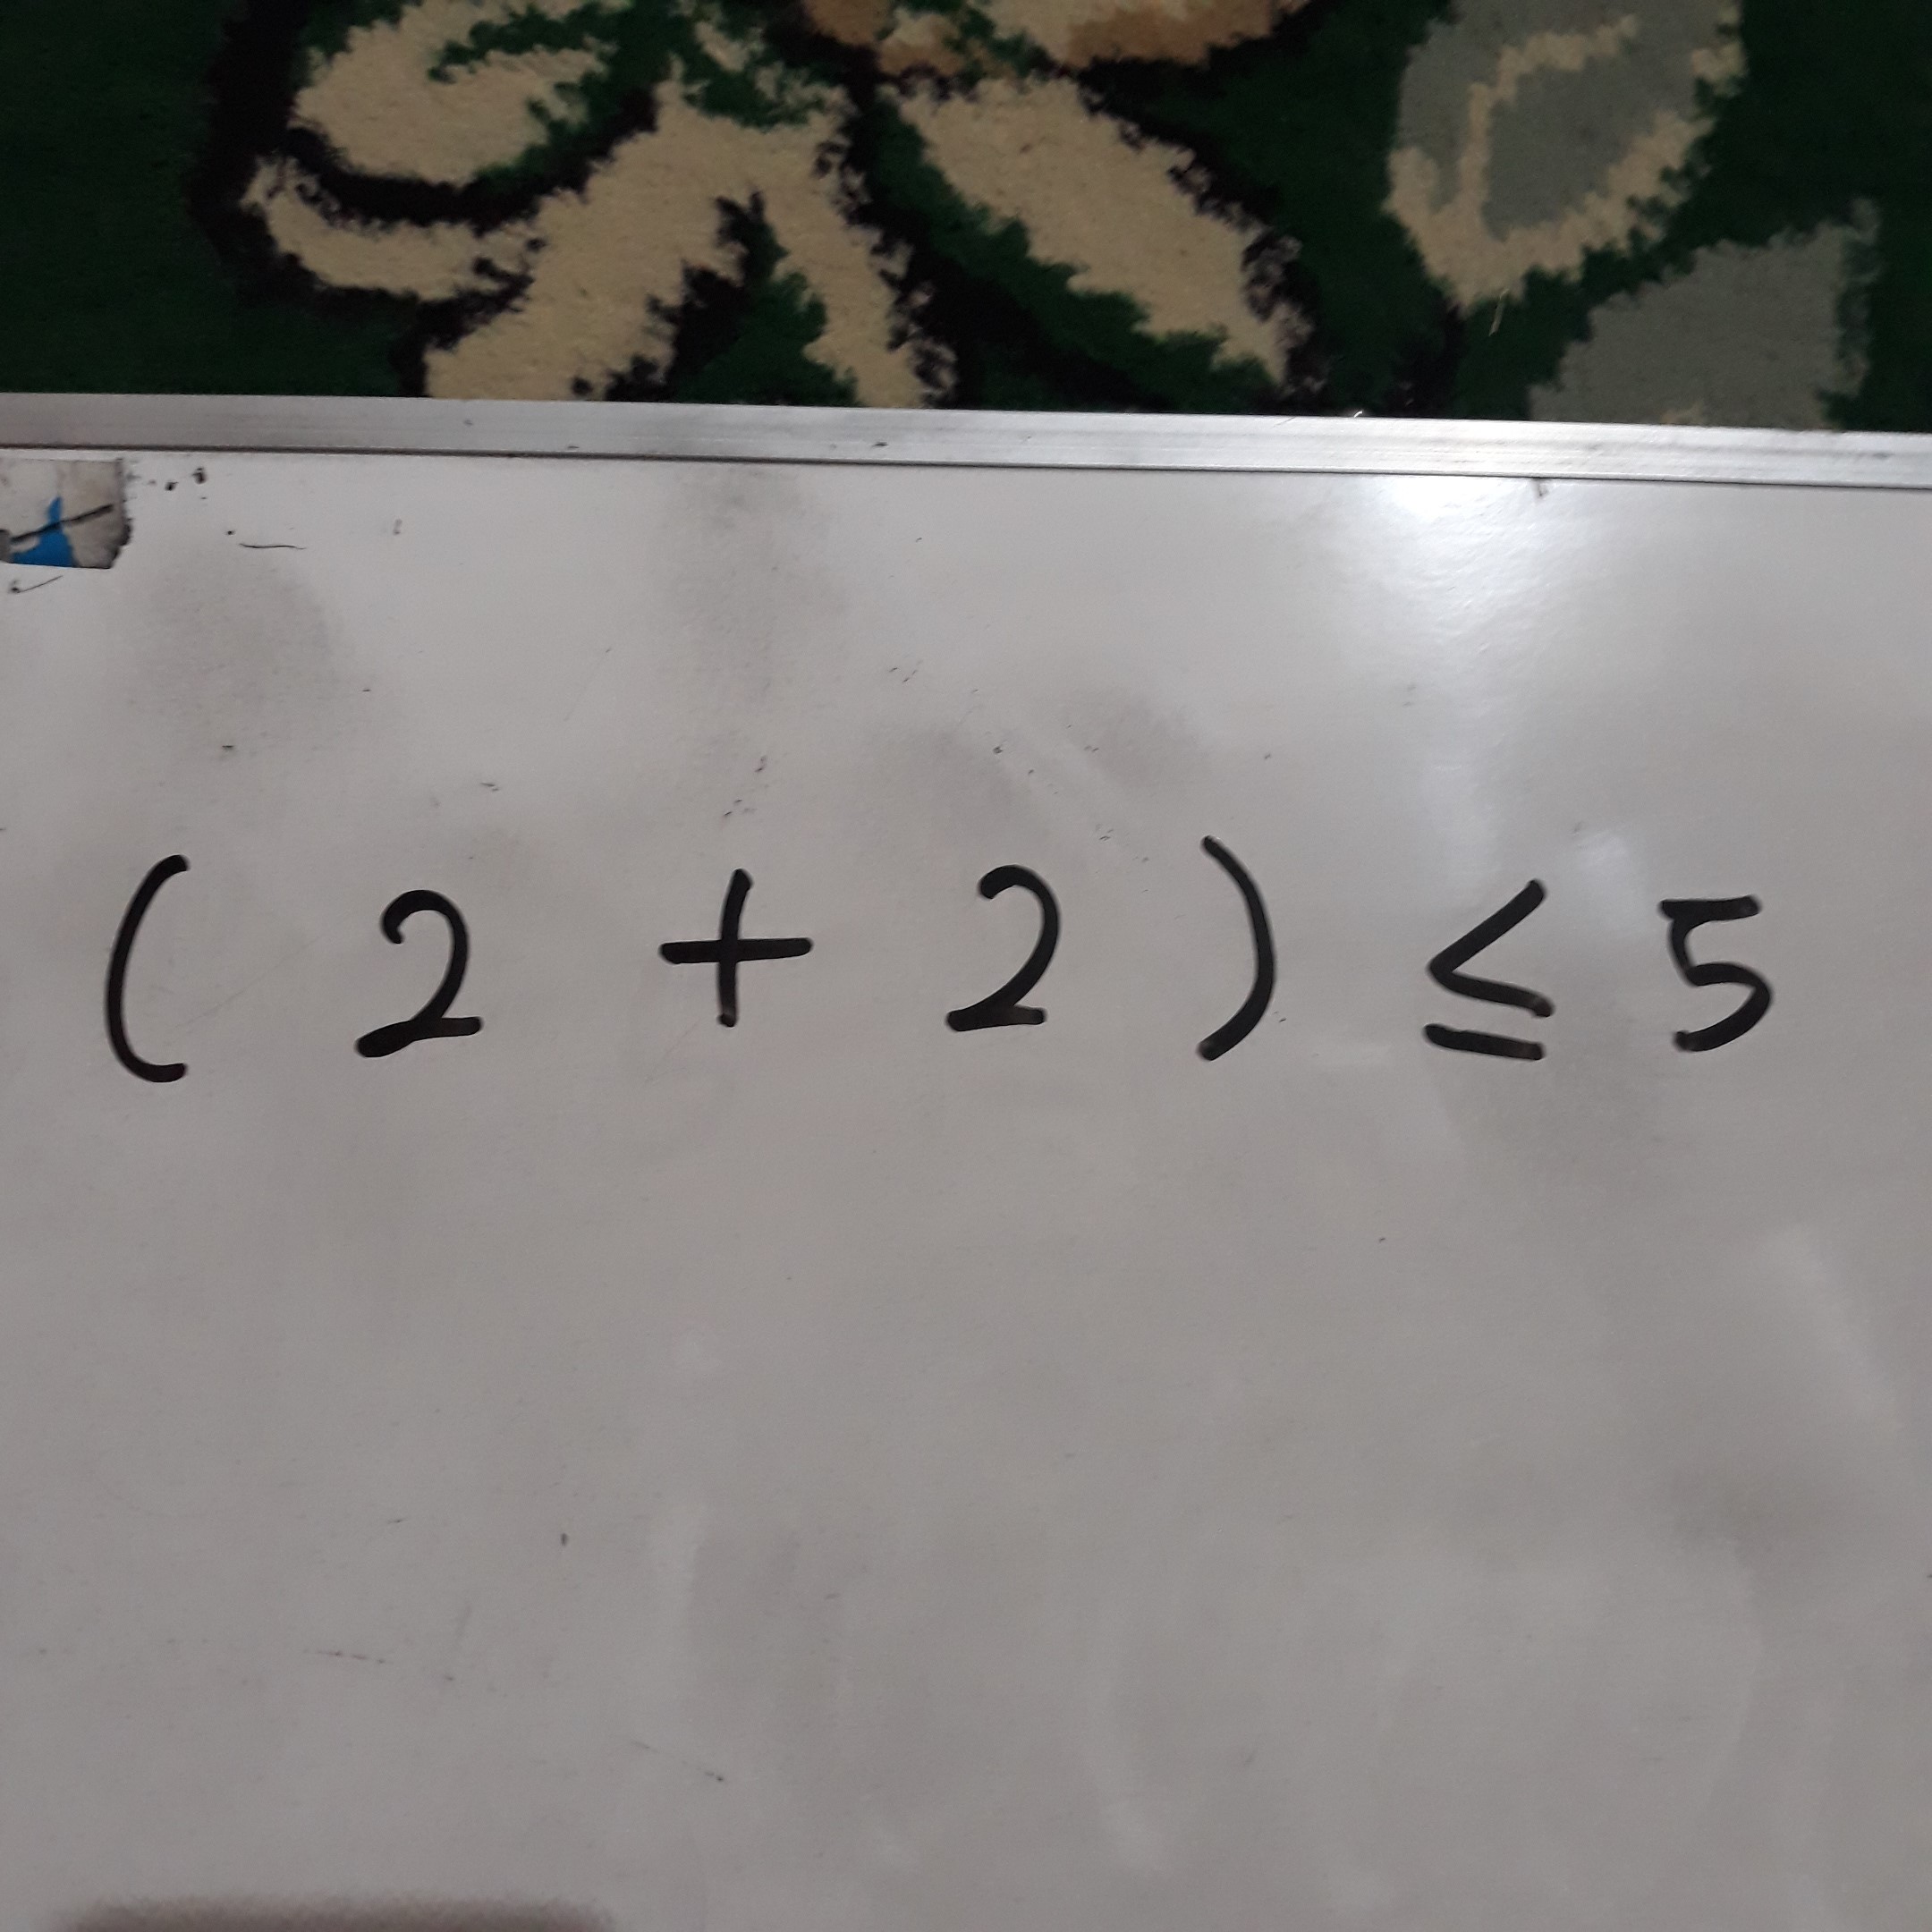 ( 2 + 2 ) ≤ 5